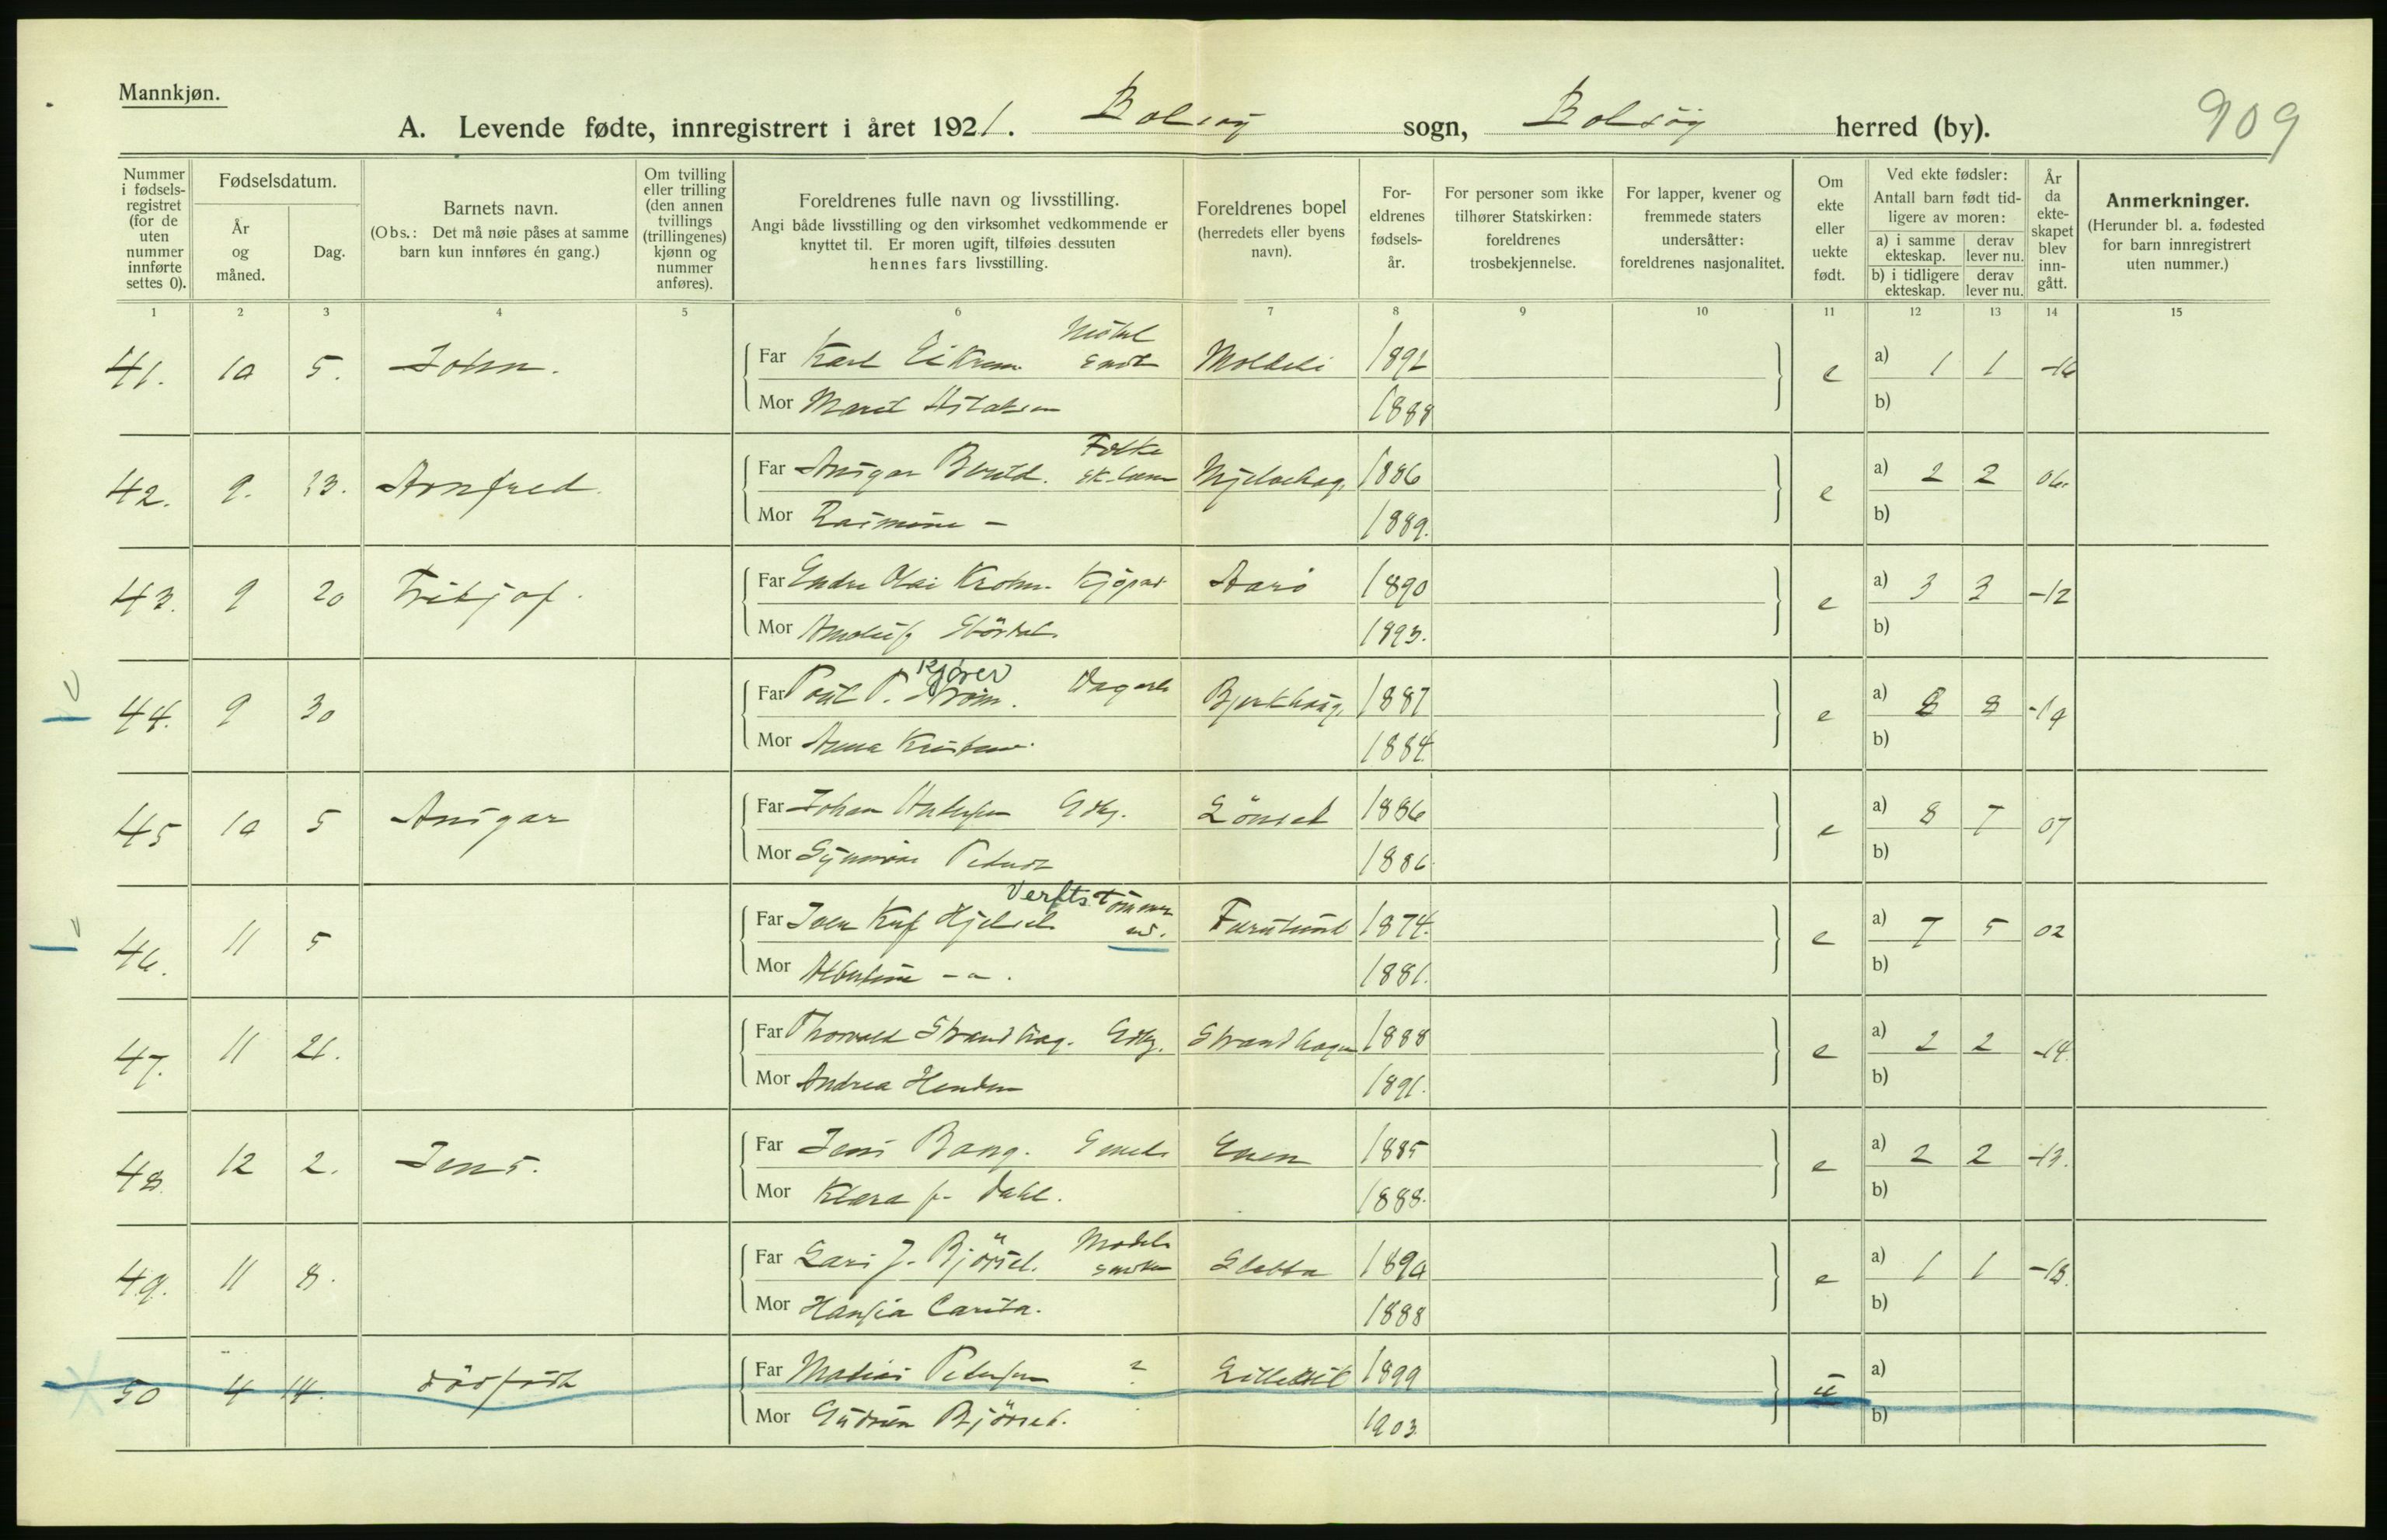 Mannkjøn.
909
A. Levende fødte, innregistrert i året 1921. Bolsøy sogn, Bolsøy herred (by).
Nummer i fødsels-registret (for de uten nummer innførte settes 0).
Fødselsdatum.
År og måned.
Dag.
Barnets navn.
(Obs.: Det må nøie påses at samme barn kun innføres én gang.)
Om tvilling eller trilling (den annen tvillings (trillingenes) kjønn og nummer anføres).
Foreldrenes fulle navn og livsstilling.
Angi både livsstilling og den virksomhet vedkommende er knyttet til. Er moren ugift, tilføies dessuten hennes fars livsstilling.
Foreldrenes bopel (herredets eller byens navn).
For-eldrenes fødsels-år.
For personer som ikke tilhører Statskirken: foreldrenes trosbekjennelse.
For lapper, kvener og fremmede staters undersåtter: foreldrenes nasjonalitet.
Om ekte eller uekte født.
Ved ekte fødsler:
Antall barn født tid-ligere av moren:
a) i samme ekteskap.
derav lever nu.
b) i tidligere ekteskap.
derav lever nu.
År da ekte-skapet blev inn-gått.
Anmerkninger.
(Herunder bl. a. fødested for barn innregistrert uten nummer.)
1 2 3 4 5 6 7 8 9 10 11 12 13 14 15
41. 10 5. John. Far Karl Eikrem Moldeli 1892 e a) 1 1 -16
Mor Marit 1888 b)
42. 9. 13. Arnfred. Far Ansgar Folke 1886 e a) 2 2 06.
Mor Rasmine - 1889. b)
43. 9 20 Fritjof. Far Endre Olai Krohn. Aarö 1890 e a) 3 3 -12
Mor 1893. b)
44. 9 30 Far Poul P. Strøm. Kjører Bjerkhaug. 1887 e a) 8 8 -19
Mor Anna 1884. b)
45 10 5 Ansgar Far Johan Gdbr. Lönset 1886 e a) 8 7 07
Mor 1886. b)
46. 11 5 Far Verfts tømmer Furulund 1874. e a) 7 5 02
Mor Albertine - " . 1881. b)
47. 11 21. Far Thorvald Strandhag. Gdbr. Strandhagen 1888 e a) 2 2 -14.
Mor Andrea 1891. b)
48. 12 2. Jens. Far Jens Bang. 1885 e a) 2 2 -13.
Mor Klara f. Dahl. 1888. b)
49. 11 8. Far Lars J. Björset. Model snekker 1890 e a) 1 1 -18.
Mor Carita. 1888 b)
50 4 14. dödfödt Far Matias Petersen ? 1899 u a)
Mor Gudrun Björset. 1903. b)